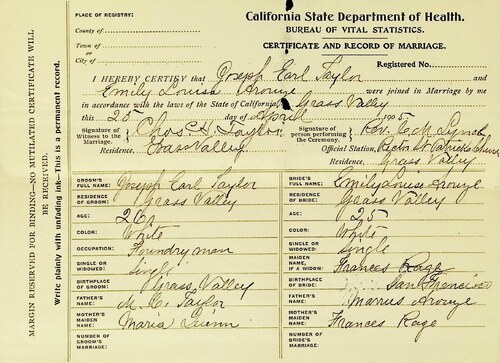 California State Department of Health.
BUREAU OF VITAL STATISTICS.
CERTIFICATE AND RECORD OF MARRIAGE.
PLACE OF REGISTRY:
County of
Town of
or
City of
Registered No.
I HEREBY CERTIFY that Joseph Earl Taylor and
Emily Louisa Arouye were joined in Marriage by me
in accordance with the laws of the State of California, Grass Valley
this 25 day of April 1905
Signature of Witness to the Marriage Chas H. Taylor
Signature of person performing the Ceremony. Rev. C. M. Lynch
Residence, Grass Valley
Official Station, Rector St Patricks Church
Residence, Grass Valley
GROOM'S FULL NAME: Joseph Earl Taylor
BRIDE'S FULL NAME: Emily Louise Arouye
RESIDENCE OF GROOM: Grass Valley
RESIDENCE OF BRIDE: Grass Valley
AGE: 26
AGE: 25
COLOR: White
COLOR: White
OCCUPATION: Foundryman
SINGLE OR WIDOWED: Single
SINGLE OR WIDOWED: Single
MAIDEN NAME, IF A WIDOW: Frances Rage
BIRTHPLACE OF GROOM: Grass Valley
BIRTHPLACE OF BRIDE: San Francisco
FATHER'S NAME: M. C. Taylor
FATHER'S NAME: Marius Arouye
MOTHER'S MAIDEN NAME: Maria Quinn
MOTHER'S MAIDEN NAME: Frances Rage
NUMBER OF GROOM'S MARRIAGE:
NUMBER OF BRIDE'S MARRIAGE:
MARGIN RESERVED FOR BINDING—NO MUTILATED CERTIFICATE WILL
BE RECEIVED.
Write plainly with unfading ink—This is a permanent record.